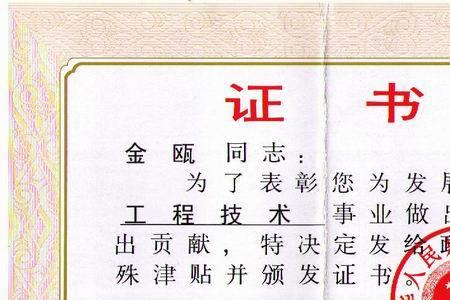 证书
金瓯 同志：
为了表彰您为发展
工程技术 事业做出
出贡献，特决定发给政
殊津贴并颁发证书
人民